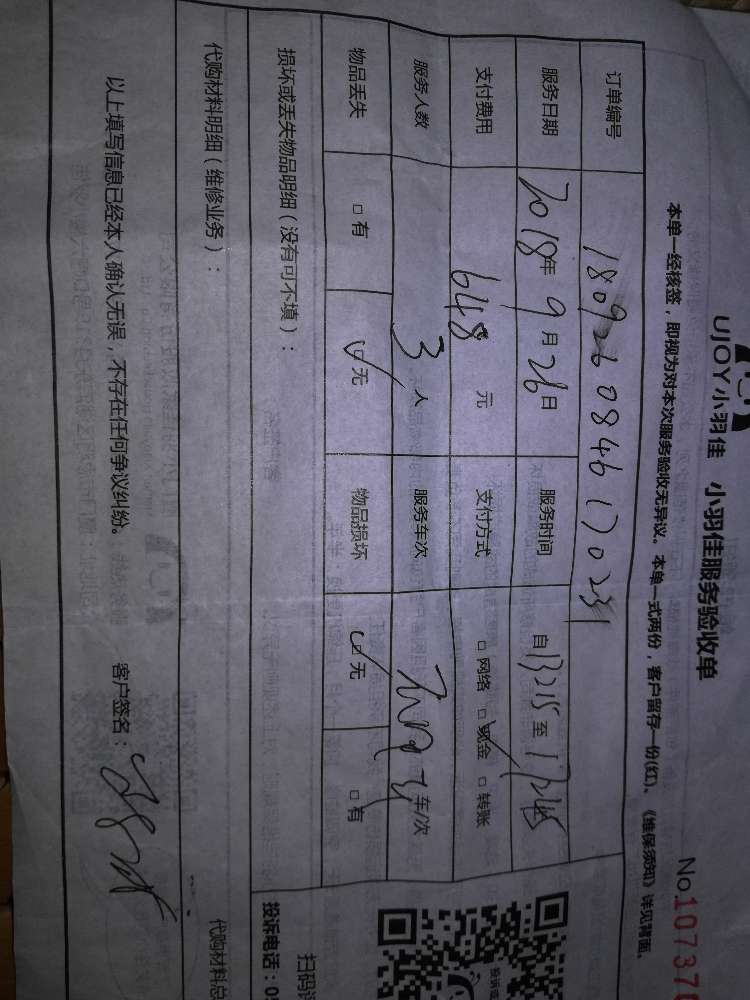 UJOY小羽佳 小羽佳服务验收单
No.10737
本单一经核签，即视为对本次服务验收无异议。本单一式两份，客户留存一份(红)、《维保须知》详见背面。
订单编号 180926084617023
服务日期 2018年9月26日 服务时间 自13:15至17:45
支付费用 648元 支付方式 □网络 □现金 □转账
服务人数 3人 服务车次 车/次
物品丢失 □有 □无 物品损坏 □无 □有
损坏或丢失物品明细（没有可不填）：
扫码
投诉电话：0
代购材料明细（维修业务）：
代购材料总
以上填写信息已经本人确认无误，不存在任何争议纠纷。 客户签名：